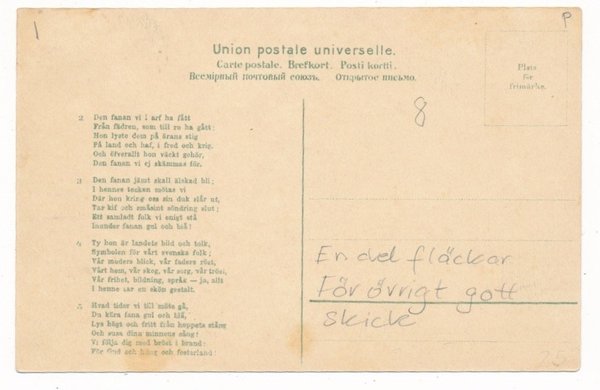 Union postale universelle.
Carte postale. Brefkort. Posti kortti.
Всемірный почтовый союзъ. Открытое письмо.
Plats
för
frimärke.
P
8
2 Den fanan vi i arf ha fått
Från fädren, som till ro ha gått;
Hon lyste dem på ärans stig
På land och haf, i fred och krig.
Och öfverallt hon väckt gehör,
Den fanan vi ej skämmas för.
3 Den fanan jämt skall älskad bli;
I hennes tecken mötas vi
Där hon kring oss sin duk slår ut,
Tar kif och småsint söndring slut;
Ett samladt folk vi enigt stå
Inunder fanan gul och blå!
4 Ty hon är landets bild och tolk,
Symbolen för vårt svenska folk;
Vår moders blick, vår faders röst,
Vårt hem, vår skog, vår sorg, vår tröst,
Vår frihet, bildning, språk — ja, allt
I henne tar en skön gestalt.
5 Hvad tider vi till möta gå,
Du kära fana gul och blå,
Lys högt och fritt från hoppets stång
Och susa dina minnens sång!
Vi följa dig med bröst i brand:
För Gud och kung och fosterland!
En del fläckar
För övrigt gott
skick